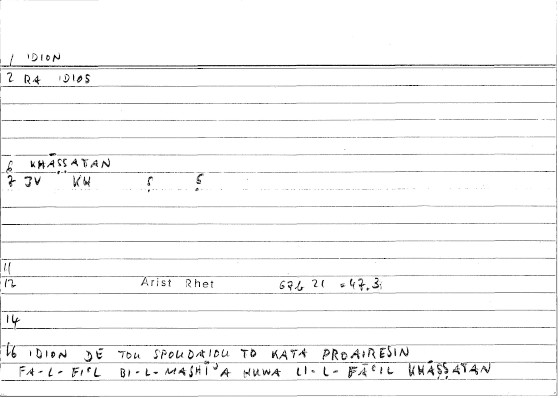 1 IDION
2 RA IDIOS
6 KHĀṢṢATAN
7 JV KH Ṣ Ṣ
11
12 Arist Rhet 67b 21 = 47.3
14
16 IDION DE TOU SPOUDAIOU TO KATA PROAIRESIN
FA-L-FIʿL BI-L-MASHĪʾA HUWA LI-L-FĀʿIL KHĀṢṢATAN